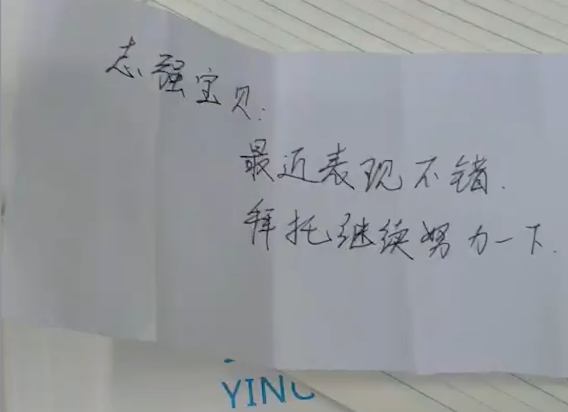 志强宝贝:
最近表现不错.
拜托继续努力一下.
YING